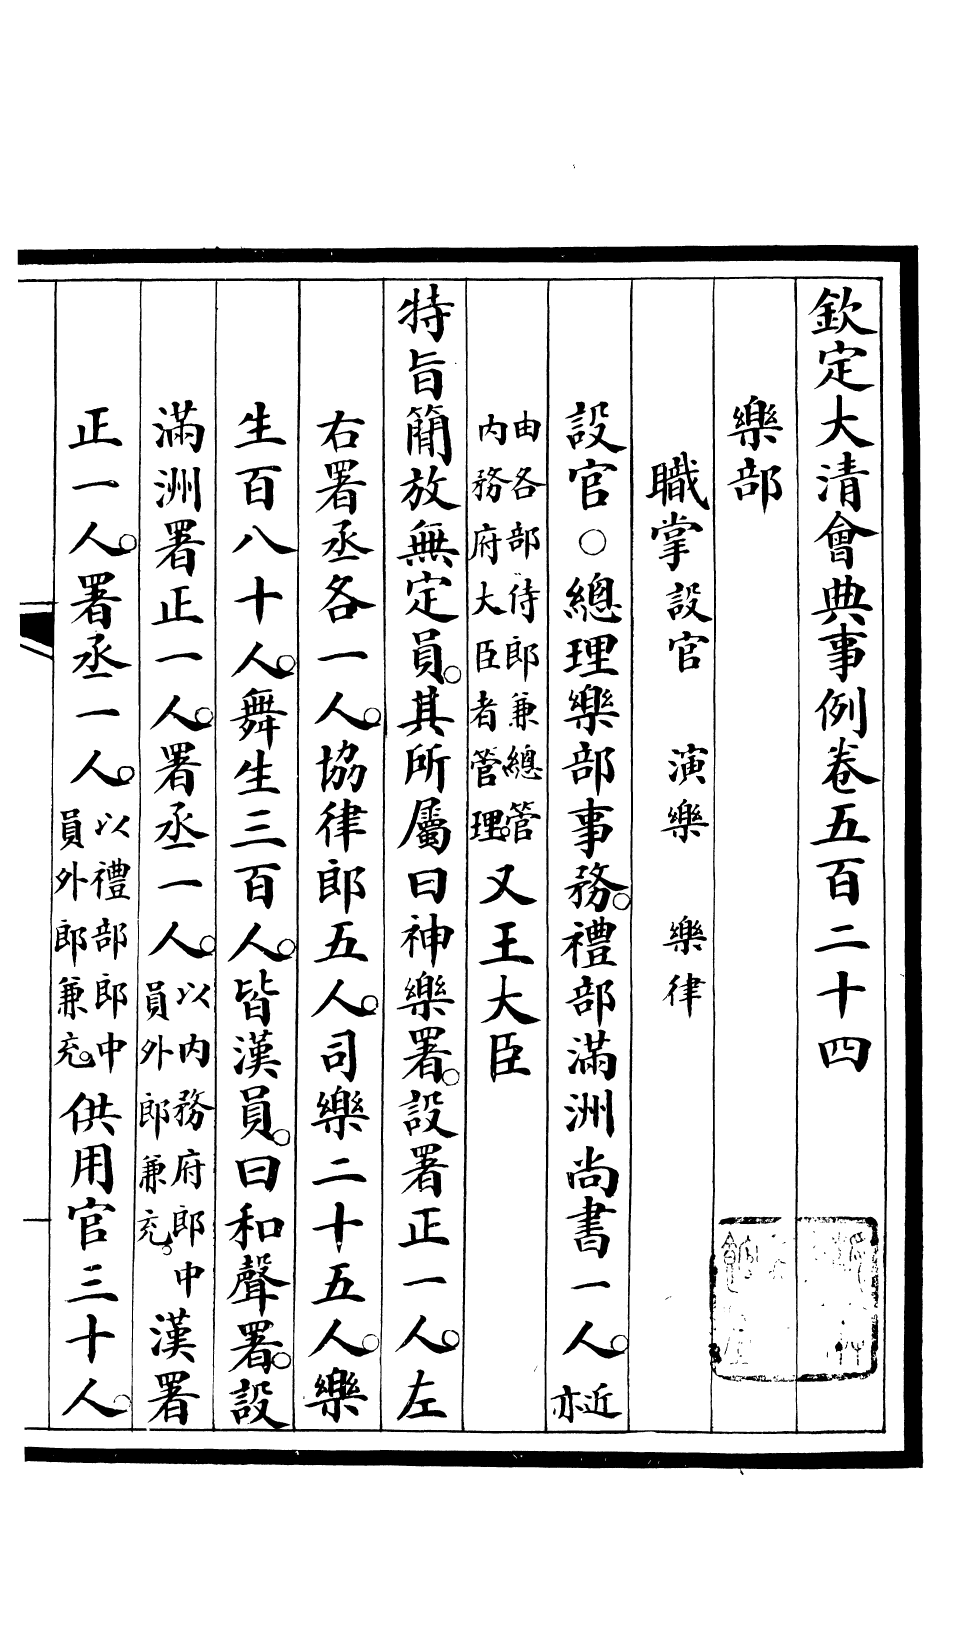 欽定大清會典事例卷五百二十四
樂部
職掌設官　演樂　樂律
設官○總理樂部事務。禮部滿洲尚書一人。近亦
由各部侍郎兼總管內務府大臣者管理。又王大臣
特旨簡放無定員。其所屬曰神樂署。設署正一人。左
右署丞各一人。協律郎五人。司樂二十五人。樂
生百八十人。舞生三百人。皆漢員。曰和聲署。設
滿洲署正一人。署丞一人。以內務府郎中員外郎兼充。漢署
正一人。署丞一人。以禮部郎中員外郎兼充。供用官三十人。